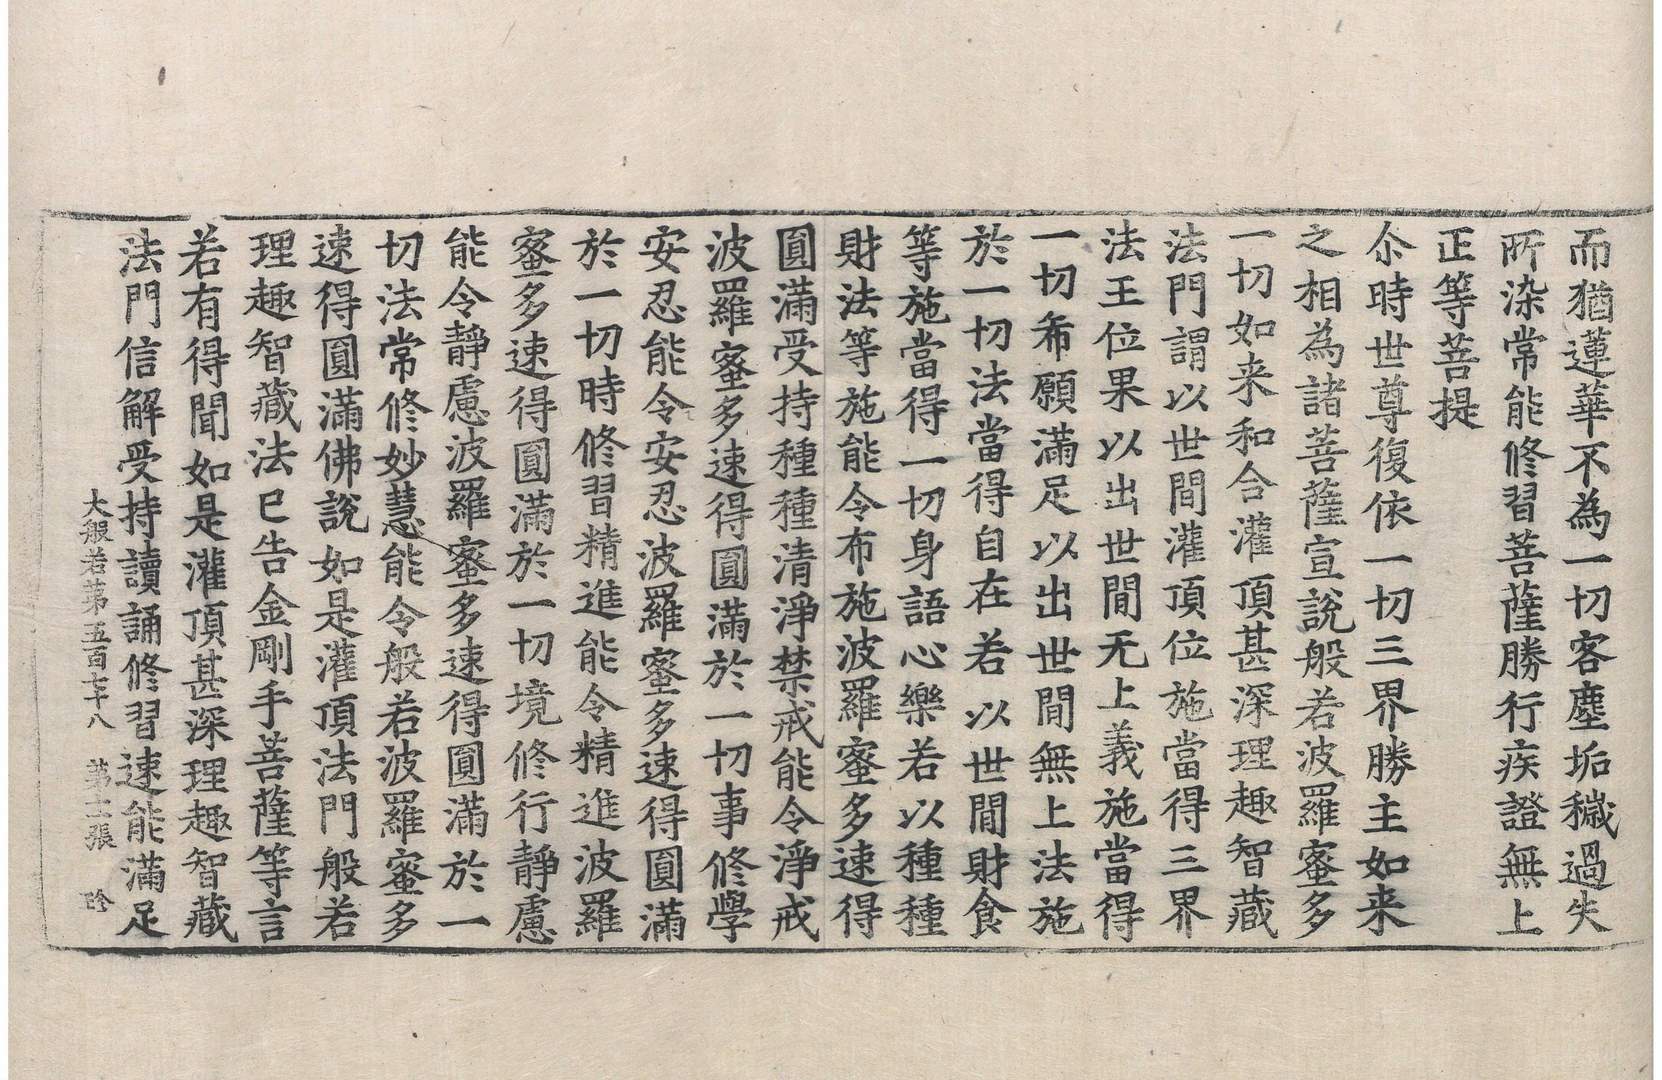 而猶蓮華不為一切客塵垢穢過失
所染常能修習菩薩勝行疾證無上
正等菩提
尒時世尊復依一切三界勝主如来
之相為諸菩薩宣說般若波羅蜜多
一切如来和合灌頂甚深理趣智藏
法門謂以世間灌頂位施當得三界
法王位果以出世間无上義施當得
一切希願滿足以出世間無上法施
於一切法當得自在若以世間財食
等施當得一切身語心樂若以種種
財法等施能令布施波羅蜜多速得
圓滿受持種種清淨禁戒能令淨戒
波羅蜜多速得圓滿於一切事修學
安忍能令安忍波羅蜜多速得圓滿
於一切時修習精進能令精進波羅
蜜多速得圓滿於一切境修行靜慮
能令靜慮波羅蜜多速得圓滿於一
切法常修妙慧能令般若波羅蜜多
速得圓滿佛說如是灌頂法門般若
理趣智藏法已告金剛手菩薩等言
若有得聞如是灌頂甚深理趣智藏
法門信解受持讀誦修習速能滿足
大般若第五百七十八 第十二張 珍